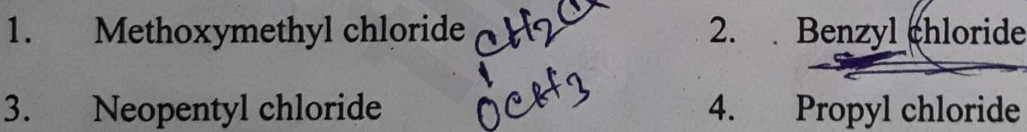 1. Methoxymethyl chloride CH2Cl 2. Benzyl chloride
OCH3
3. Neopentyl chloride 4. Propyl chloride